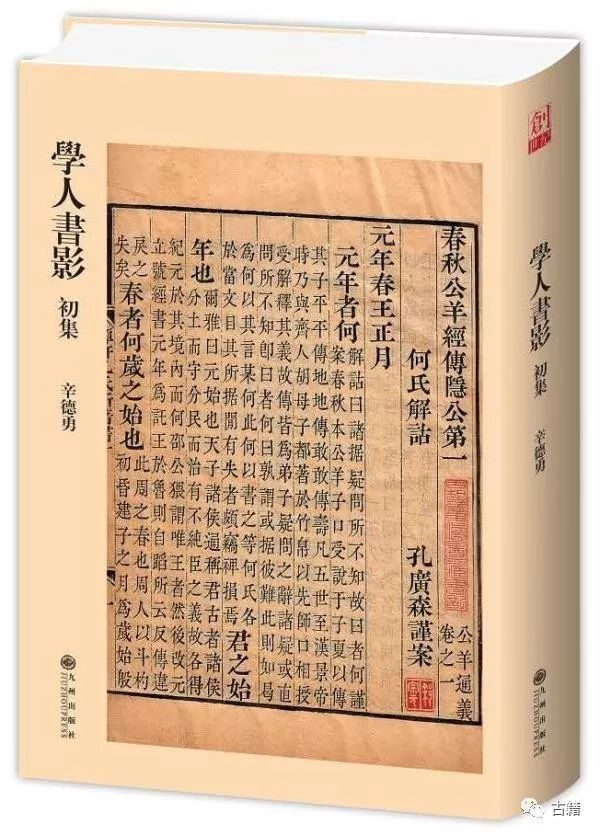 學人書影
初集
辛德勇
春秋公羊經傳隱公第一
公羊通義
卷之一
何氏解詁 孔廣森謹案
元年春王正月
元年者何
解詁曰諸據疑問所不知故曰者何謹
案春秋本公羊子口受說于子夏以傳
其子平平傳地地傳敢敢傳壽凡五世至漢景帝
時乃與齊人胡母子都著於竹帛以先師口相授
受解釋其義故傳皆爲弟子疑問之辭諸疑或直
問所不知卽曰者何曰孰謂或據彼難此則如曷
為何以其言某何此何以書之等何氏各
於當文目其所據閒有失者頗竊裨損焉
君之始
年也
爾雅曰元始也天子諸侯通稱君古者諸侯
分土而守分民而治有不純臣之義故各得
紀元於其境內而何邵公猥謂唯王者然後改元
立號經書元年爲託王於魯則自蹈所云反傳違
戾之
失矣
春者何歲之始也
此周之春也周人以斗杓
初昏建子之月爲歲始般
九州出版社
JIUZHOUPRESS
創世紀
學人書影
初集
辛德勇
九州出版社
JIUZHOUPRESS
古籍